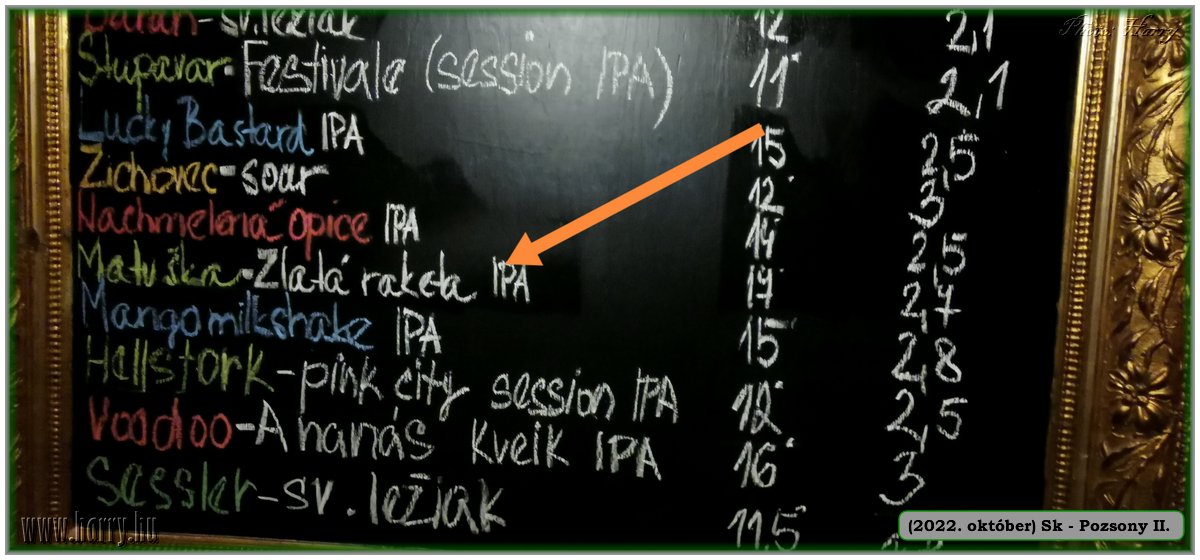 sv. ležiak 12 2,1
Photo: Harry
Stupavar - Festivale (session IPA) 11° 2,1
Lucky Bastard IPA 15 2,5
Zichovec - soar 12° 3
Nachmelená opice IPA 14 2,5
Matuška - Zlatá raketa IPA 17 2,7
Mangomilkshake IPA 15 2,8
Hellstork - pink city session IPA 12° 2,5
Voodoo - Ananás Kveik IPA 16° 3
Sessler - sv. ležiak 11,5
www.horry.hu
(2022. október) Sk - Pozsony II.